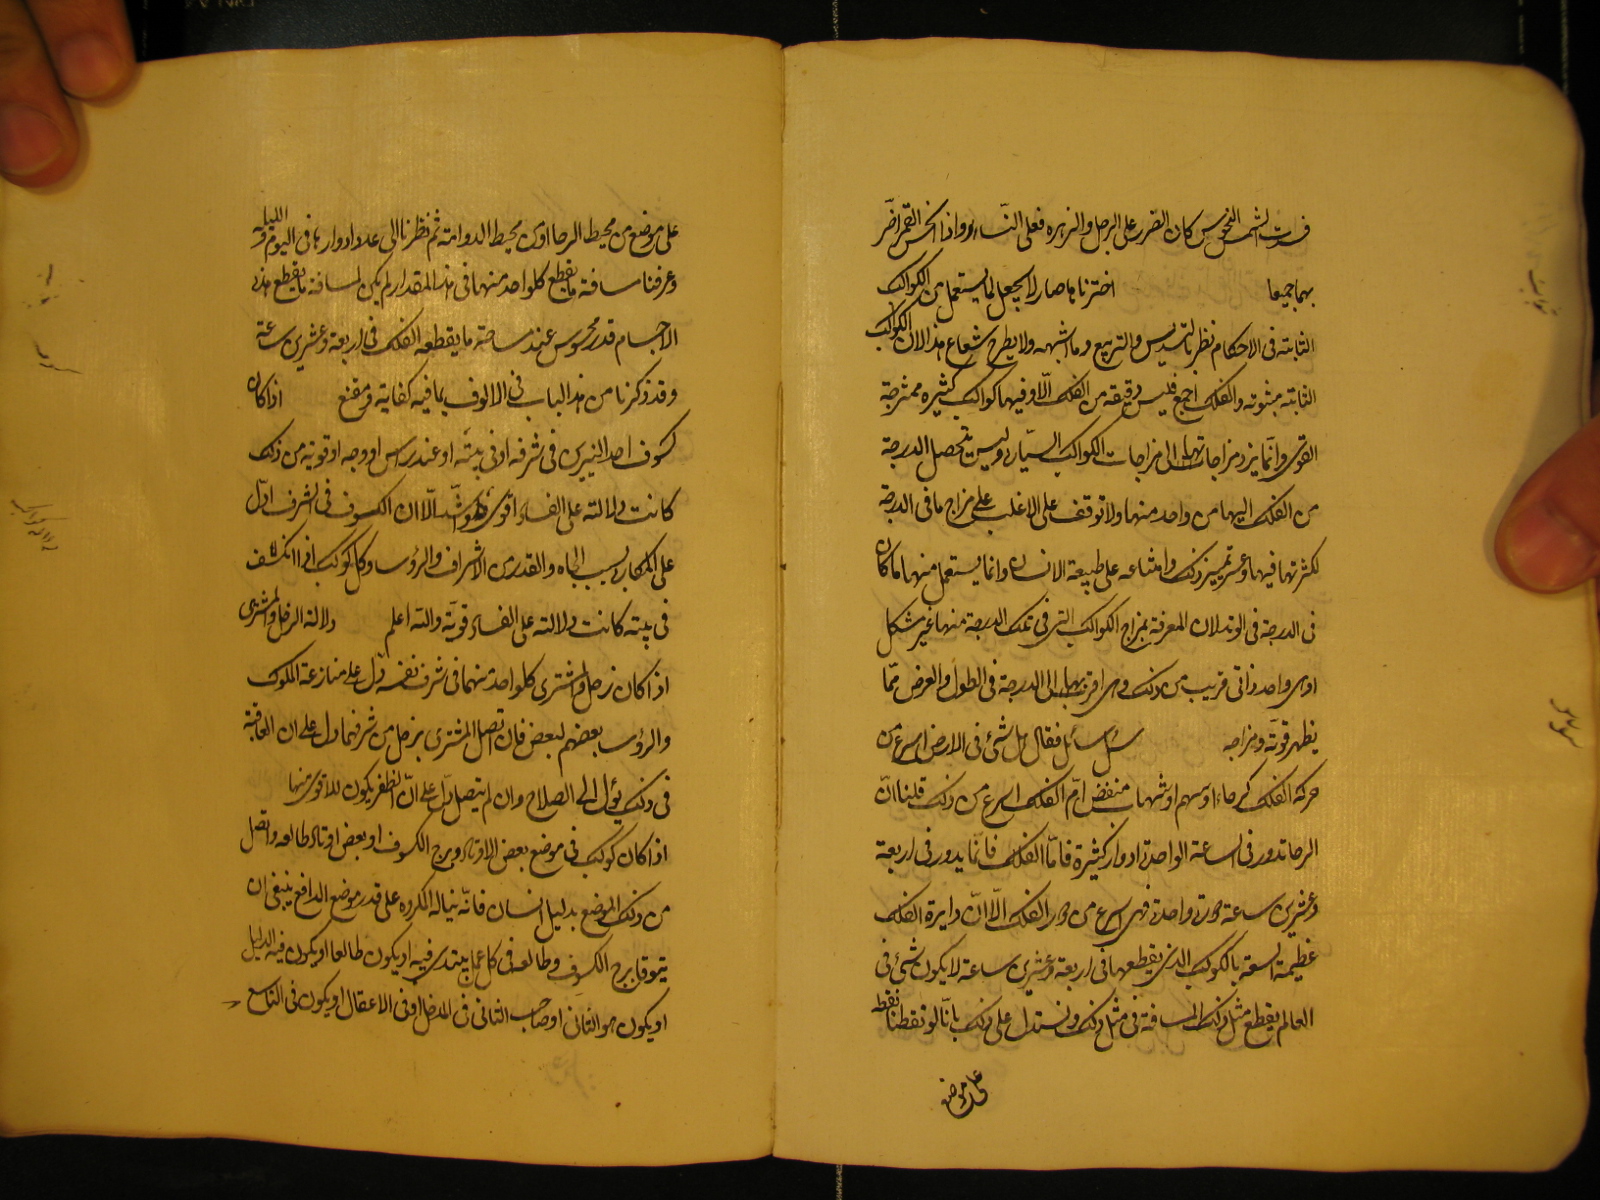 فسدت الشمس النحوس كان الضرر على الرجل والزهره فعلى النساء واذا نحس القمر اضر
بهما جميعا اخترنا ما صار لا يجعل لما يستعمل من الكواكب
الثابتة فى الاحكام نظر بالتسديس والتربيع وما اشبهه ولا يطرح شعاع هذا لان الكواكب
الثابتة مبثوثه والفلك اجمع فليس دقيقة من الفلك الّا وفيها كواكب كثيره ممتزجة
القوى وانّما يرد مزاجاتها الى مزاجات الكواكب السيّاره وليس يتحصل الدرجة
من الفلك اليها من واحد منها ولا توقف على الاغلب على مزاج ما فى الدرجة
لكثرتها فيها وعسر تمييز ذلك وامتناعه على طبيعة الانسان وانما يستعمل منها ما كان
فى الدرجة فى الوتد لان المعرفة بمزاج الكواكب التى فى تلك الدرجة منها غير مشكل
او فى واحد زائى قريب من ذلك وهى اقربها الى الدرجة فى الطول والعرض ممّا
يظهر قوته ومزاجه سئل سائل فقال هل شئ فى الارض اسرع من
حركه الفلك كرحاء او سهم او شهاب منقض ام الفلك اسرع من ذلك قلنا انّ
الرحا تدور فى الساعة الواحدة ادوار كثيرة فامّا الفلك فانّما يدور فى اربعة
وعشرين ساعة دورة واحدة فهى اسرع من دور الفلك الّا انّ دايرة الفلك
عظيمة السعة بالكوكب الذى يقطعها فى اربعة وعشرين ساعة لا يكون شئ فى
العالم يقطع مثل ذلك المسافة فى مثل ذلك ونستدل على ذلك بانّا لو نقطنا نقطه
على موضع
على موضع من محيط الرحا او من محيط الدوامة ثم نظرنا الى عدد ادوارها فى اليوم والليلة
وعرفنا مسافة ما يقطع كل واحد منهما فى هذا المقدار لم يكن لمسافة ما يقطع هذه
الاجسام قدر محسوس عند مساحة ما يقطعه الفلك فى اربعة وعشرين ساعة
وقد ذكرنا من هذا الباب فى الالوف بما فيه كفاية ومقنع اذا كان
كسوف احد النيرين فى شرفه او فى بيته او عند رأس اوجه او قوية من ذلك
كانت دلالته على الفساد اقوى واشد الّا ان الكسوف فى الشرف ادلّ
على المكاره بسبب الجاه والقدر من الاشراف والرؤسا وكل كوكب اذا انكسف
فى بيته كانت دلالته على الفساد قوية والله اعلم دلالة الزحل والمشترى
اذا كان زحل والمشترى كل واحد منهما فى شرف نفسه دل على منازعة الملوك
والرؤسا بعضهم لبعض فان اتصل المشترى بزحل من شرفهما دل على ان العاقبة
فى ذلك يؤل الى الصلاح وان لم يتصل دلّ على انّ الظفر يكون للاقوى منها
اذا كان كوكب فى موضع بعض الاوتاد وبرج الكسوف او بعض اوتاد طالعه واتصل
من ذلك الموضع بدليل انسان فانّه يناله المكروه على قدر موضع الدافع ينبغى ان
يتوقا برج الكسوف وطالعه فى كل عمل يبتدى فيه ان يكون طالعا او يكون فيه الدليل
او يكون هو الثانى او صاحب الثانى فى المدخل او فى الاعقال او يكون فى التاسع